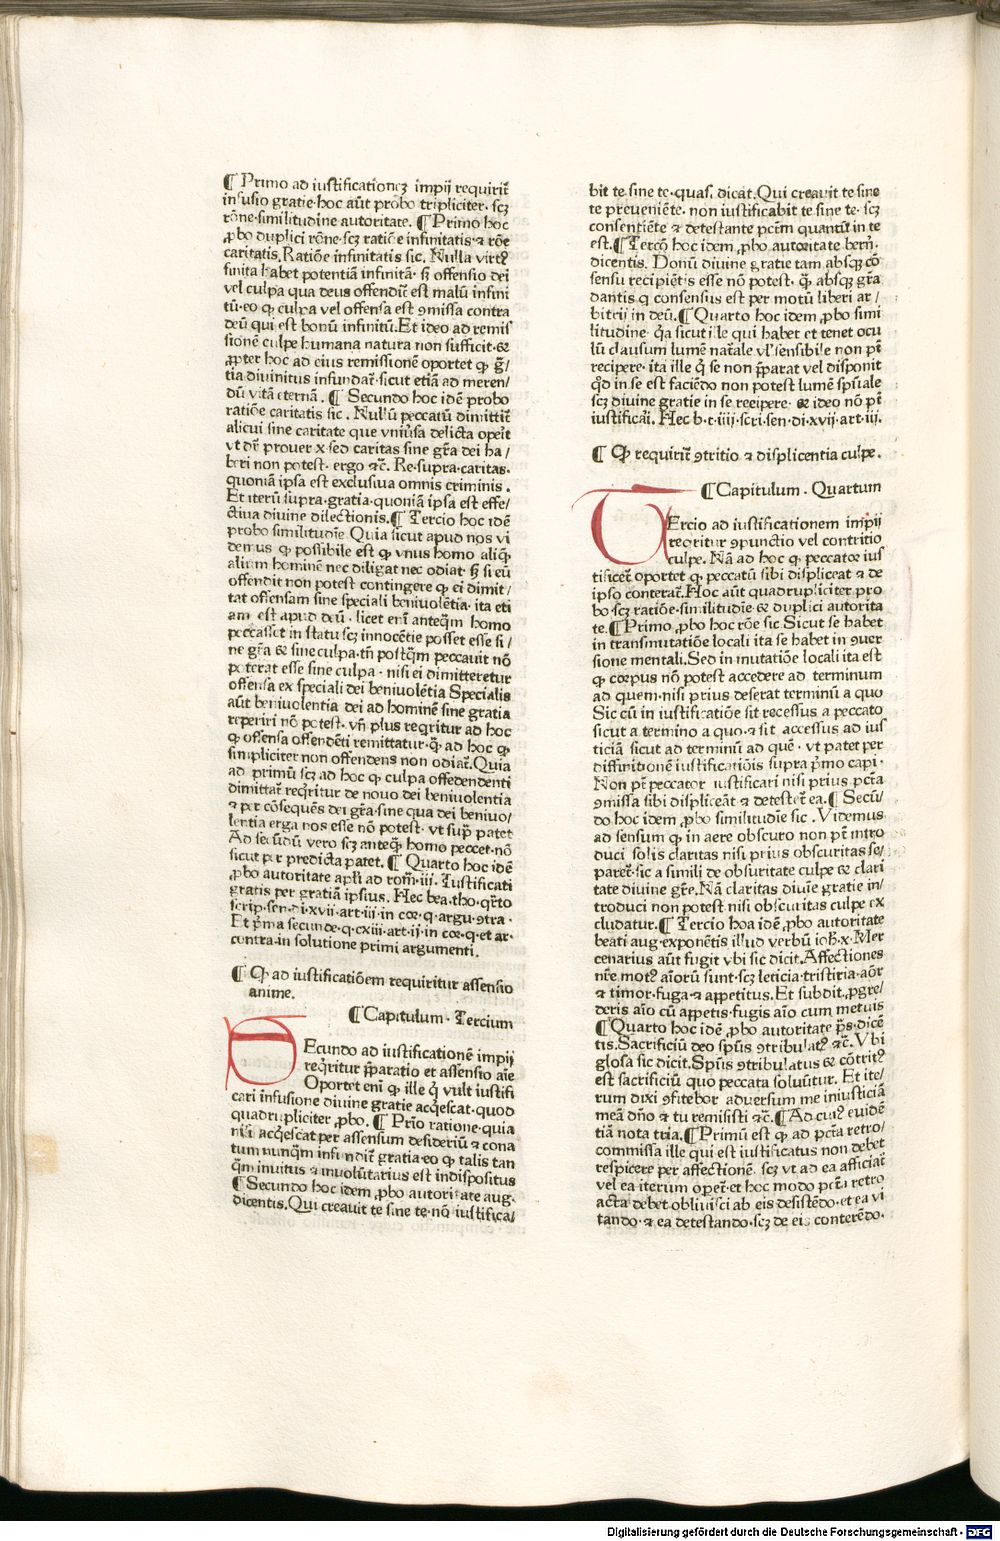 ¶ Primo ad iustificationeꝫ impij requirit᷑
infusio gratie·hoc aūt probo tripliciter· scꝫ
rōne·similitudine autoritate. ¶ Primo hoc
ꝓbo duplici rōne·scꝫ ratiōe infinitatis·⁊ rōe
caritatis. Ratiōe infinitatis sic. Nulla virtꝰ
finita habet potentiā infinitā· sꝫ offensio dei
vel culpa qua deus offendit᷑ est malū infini
tū·eo ꝙ culpa vel offensa est ꝯmissa contra
deū qui est bonū infinitū. Et ideo ad remis
sionē culpe humana natura non sufficit·&
ꝓpter hoc ad eius remissionē oportet ꝙ gr̄/
tia diuinitus infundat᷑·sicut etiā ad meren/
dū vitā eternā. ¶ Secundo hoc idē probo
ratiōe caritatis sic. Nullū peccatū dimittit᷑
alicui sine caritate que vniūsa delicta operit
vt dr̄ prouer x·sed caritas sine gr̄a dei ha/
beri non potest· ergo ⁊c̄. Re·supra·caritas·
quoniā ipsa est exclusiua omnis criminis.
Et iterū supra·gratia·quoniā ipsa est effe/
ctiua diuine dilectionis. ¶ Tercio hoc idē
probo similitudīe. Quia sicut apud nos vi
demus ꝙ possibile est ꝙ vnus homo aliqꝫ
alium hominē nec diligat nec odiat· sꝫ si eū
offendit non potest contingere ꝙ ei dimit/
tat offensam sine speciali beniuolētia· ita eti
am est apud deū· licet eni̅ anteqꝫ̄ homo
peccasset in statu scꝫ innocētie posset esse si/
ne gr̄a & sine culpa·tn̄ postqꝫ̄ peccauit nō
poterat esse sine culpa· nisi ei dimitteretur
offensa ex speciali dei beniuolētia Specialis
aūt beniuolentia dei ad hominē sine gratia
reperiri nō potest. vn̄ plus reqritur ad hoc
ꝙ offensa offendēti remittatur·qꝫ̄ ad hoc ꝙ
simpliciter non offendens non odiat᷑. Quia
ad primū scꝫ ad hoc ꝙ culpa offedendenti
dimittat᷑ reqritur de nouo dei beniuolentia
⁊ per cōsequēs dei gr̄a·sine qua dei beniuo/
lentia erga nos esse nō potest· vt sup̄ patet
Ad secūdū vero scꝫ anteqꝫ̄ homo peccet·nō
sicut per predicta patet. ¶ Quarto hoc idē
ꝓbo autoritate apl̄i ad rom̄·iii· Iustificati
gratis per gratiā ipsius. Hec bea·tho·qrto
scrip·sen·di·xvii·art·iii·in cor·q·argu·ꝯtra·
Et p̄ma secunde·q·cxiii·art·ij·in cor·q·et ar·
contra·in solutione primi argumenti.
¶ Ꝙ ad iustificatiōem requiritur assensio
anime.
¶ Capitulum · Tercium
Secundo ad iustificationē impij
reqritur p̄paratio et assensio aīe
Oportet eni̅ ꝙ ille q̇ vult iustifi
cari infusione diuine gratie acqescat·quod
quadrupliciter ꝓbo. ¶ Prīo ratione·quia
nisi acqescat per assensum desideriū ⁊ cona
tum nunqꝫ̄ infundit᷑ gratia·eo ꝙ talis tan
qꝫ̄ inuitus ⁊ inuolūtarius est indispositus
¶ Secundo hoc idem ꝓbo autoritate aug·
dicentis. Qui creauit te sine te·nō iustifica/
bit te sine te·quas. dicat. Qui creauit te sine
te preueniēte· non iustificabit te sine te· scꝫ
consentiēte ⁊ detestante pctm̄ quantū in te
est. ¶ Tercō hoc idem ꝓbo autoritate bern̄·
dicentis. Donū diuine gratie tam absqꝫ cō
sensu recipiēt᷑s esse nō potest· qꝫ̄ absqꝫ gr̄a
dantis q consensus est per motū liberi ar/
bitrij in deū. ¶ Quarto hoc idem ꝓbo simi
litudine· qa sicut ille qui habet et tenet ocu
lū clausum lumē nat᷑ale vl̕ sensibile non pt̄
recipere· ita ille q̇ se non p̄parat vel disponit
qd̄ in se est faciēdo non potest lumē spūale
scꝫ diuine gratie in se recipere· & ideo nō pt̄
iustificari. Hec b·t·iiii·scri·sen·di·xvii·art·iii·
¶ Ꝙ requirit᷑ ꝯtritio ⁊ displicentia culpe.
¶ Capitulum · Quartum
Tercio ad iustificationem impij
reqritur ꝯpunctio vel contritio
culpe. Nā ad hoc ꝙ peccator ius
tificet᷑ oportet ꝙ peccatū sibi displiceat ⁊ de
ipso conterat᷑. Hoc aūt quadrupliciter pro
bo·scꝫ ratiōe·similitudīe & duplici autorita
te. ¶ Primo ꝓbo hoc rōe sic. Sicut se habet
in transmutatiōe locali ita se habet in ꝯuer
sione mentali. Sed in mutatiōe locali ita est
ꝙ corpus nō potest accedere ad terminum
ad quem·nisi prius deserat terminū a quo
Sic cū in iustificatiōe sit recessus a peccato
sicut a termino a quo·⁊ sit accessus ad ius
ticiā sicut ad terminū ad quē· vt patet per
diffinitionē iustificatiōis supra p̄mo capi·
Non pt̄ peccator iustificari nisi prius pctā
ꝯmissa sibi displiceāt ⁊ detestet᷑ ea. ¶ Secū/
do hoc idem ꝓbo similitudīe sic. Videmus
ad sensum ꝙ in aere obscuro non pt̄ intro
duci solis claritas nisi prius obscuritas se/
paret᷑·sic a simili de obsuritate culpe & clari
tate diuine gr̄e. Nā claritas diuīe gratie in/
troduci non potest nisi obscuritas culpe ex
cludatur. ¶ Tercio hoa idē ꝓbo autoritate
beati aug·exponētis illud verbū ioh̄·x·Mer
cenarius aūt fugit vbi sic dicit. Affectiones
nr̄e motꝰ aīorū sunt·scꝫ leticia·tristiria·aōr
⁊ timor·fuga·⁊ appetitus. Et subdit ꝓgre/
deris aīo cū appetis·fugis aīo cum metuis
¶ Quarto hoc idē ꝓbo autoritate p̄s·dicē
tis. Sacrificiū deo spūs ꝯtribulatꝰ ⁊c̄. Vbi
glosa sic dicit. Spūs ꝯtribulatus & cōtritꝰ
est sacrificiū quo peccata soluūtur. Et ite/
rum dixi ꝯfitebor aduersum me iniusticiā
meā dn̄o & tu remisisti ⁊c̄. ¶ Ad cuiꝰ euidē
tiā nota tria. ¶ Primū est ꝙ ad pctā retro/
commissa ille qui est iustificatus non debet
respicere per affectionē· scꝫ vt ad ea afficiat᷑
vel ea iterum operet᷑·et hoc modo pctā retro
acta debet obliuisci ab eis desistēdo·et ea vi
tando·⁊ ea detestando·scꝫ de eis conterēdo·
Digitalisierung gefördert durch die Deutsche Forschungsgemeinschaft - DFG